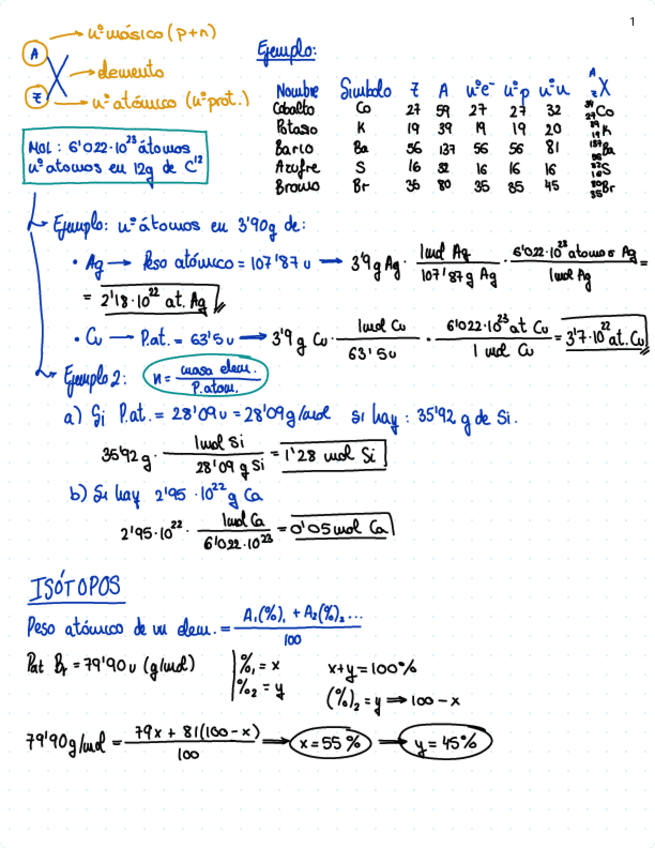 1
A → nº másico (p+n)
X → elemento
Z → nº atómico (nº prot.)
MOL: 6'022·10²³ átomos
nº atomos en 12g de C¹²
Ejemplo:
Nombre Símbolo Z A nºe⁻ nºp nºn ᴬ_Z X
Cobalto Co 27 59 27 27 32 ⁵⁹₂₇Co
Potasio K 19 39 19 19 20 ³⁹₁₉K
Bario Ba 56 137 56 56 81 ¹³⁷₅₆Ba
Azufre S 16 32 16 16 16 ³²₁₆S
Bromo Br 35 80 35 35 45 ⁸⁰₃₅Br
Ejemplo: nº átomos en 3'90g de:
• Ag → Peso atómico = 107'87 u → 3'9g Ag · 1mol Ag / 107'87g Ag · 6'022·10²³ atomos Ag / 1mol Ag =
= 2'18·10²² at. Ag
• Cu → P.at. = 63'5u → 3'9g Cu · 1mol Cu / 63'5u · 6'022·10²³ at Cu / 1 mol Cu = 3'7·10²² at. Cu
Ejemplo 2: n = masa elem. / P.atom.
a) Si P.at. = 28'09u = 28'09g/mol si hay: 35'92 g de Si.
35'92 g · 1mol Si / 28'09 g Si = 1'28 mol Si
b) Si hay 2'95 · 10²² g Ca
2'95·10²² · 1mol Ca / 6'022·10²³ = 0'05 mol Ca
ISÓTOPOS
Peso atómico de un elem. = A₁(%)₁ + A₂(%)₂... / 100
Pat Br = 79'90 u (g/mol) %₁ = x x+y = 100%
%₂ = y (%)₂ = y ⇒ 100 - x
79'90g/mol = 79x + 81(100-x) / 100 → x = 55% → y = 45%